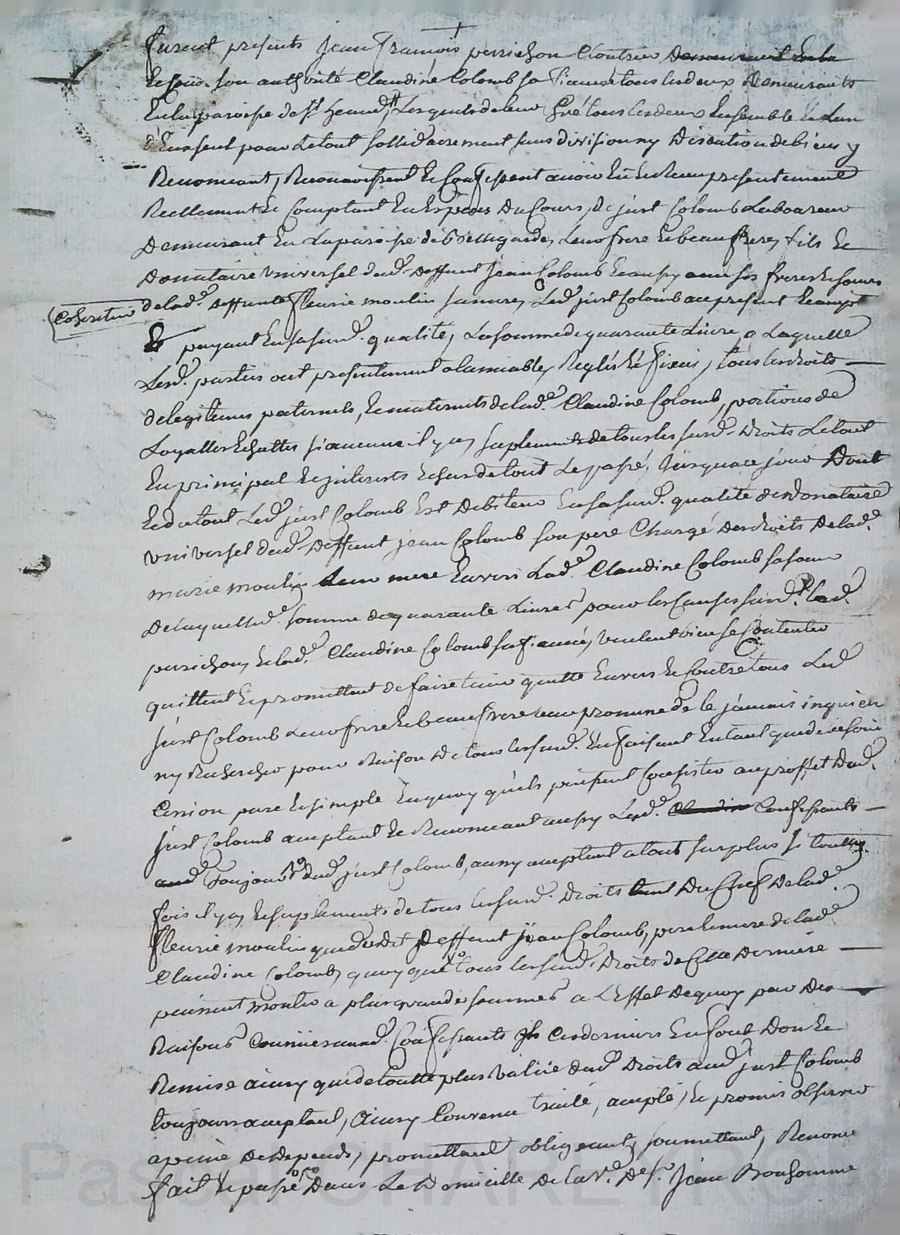 furent presents Jean francois perichon Cloutrier Demeurant En la
Et sous son authorité Claudine Colomb sa fiancée tous les deux Demeurants
En la paroisse de St heand, Lesquels de leur Gré tous les deux Ensemble et L'un
d'Eux seul pour Le tout sollidairement sans division ny Discution de biens y
Renonceant, Reconnoissent Et Confessent avoir Eu et Receu presentement
Reellement Et Comptant En Especes Du Cours, De just Colomb Laboureur
Demeurant En La paroisse de Bellegarde, Leur frere Et beau frere, fils Et
Donnataire Universel dud. deffunt Jean Colomb Et aussy avec ses freres et soeurs
Coheritier de lad. deffunte fleurie moulin sa mere, Led. just Colomb au present Et accept
payant En sasusd. qualité, La somme de quarante Livres a Laquelle
Lesd. parties ont presentement a lamiable, Reglés Et fixés, tous les droits
de legitimes paternels, Et maternels de lad. Claudine Colomb, portions de
Loyalles Echuttes si aucune il y a, suplements de tous les susd. Droits Le tout
En principal Et interests Echus de tout Le passé, jusqua ce jour Dont
Et du tout Led. just Colomb Est Debiteur En sasusd. qualité de donataire
universel dud. Deffunt jean Colomb son pere Chargé Des droits De lad.
marie moulin Leur mere Envers Lad. Claudine Colomb sa soeur
De laquelle d. somme de quarante Livres pour les Causes susd. Led.
perichon, Et lad. Claudine Colomb sa fiancée, veulent bien se Contenter
quittent Et promettent de faire tenir quitte Envers Et Contre tous Led
just Colomb Leur frere Et beau frere avec promesse de ne le jamais inquieter
ny Rechercher pour Raison De tous les susd. En faisant En tant que de besoin
Cession pure Et simple En quoy qu'ils puissent Consister au proffit Dud.
just Colomb acceptant Et Renonceant aussy Lesd. Confessants
Toujours dud. just Colomb, aussy acceptant a tout surplus si toutte
fois il y a, Et suplements de tous les susd. Droits Du Chef De lad.
fleurie moulin que dudit Deffunt jean Colomb, pere Et mere de lad.
Claudine Colomb, quoy que tous les susd. Droits de Cette Derniere
puissent monter a plus grandes sommes a L'effet De quoy pour Des
Raisons Confessants Ces derniers En font Don Et
Remise Ainsy que de toutte plus valüe dud. Droits aud. just Colomb
toujours acceptant, Ainsy Convenu traité, accepté, Et promis observer
a peine De Depends, promettant obligeant, soumettant, Renonc
fait Et passé Dans Le Domicille De la Ve. De Sr. Jean Bonhomme